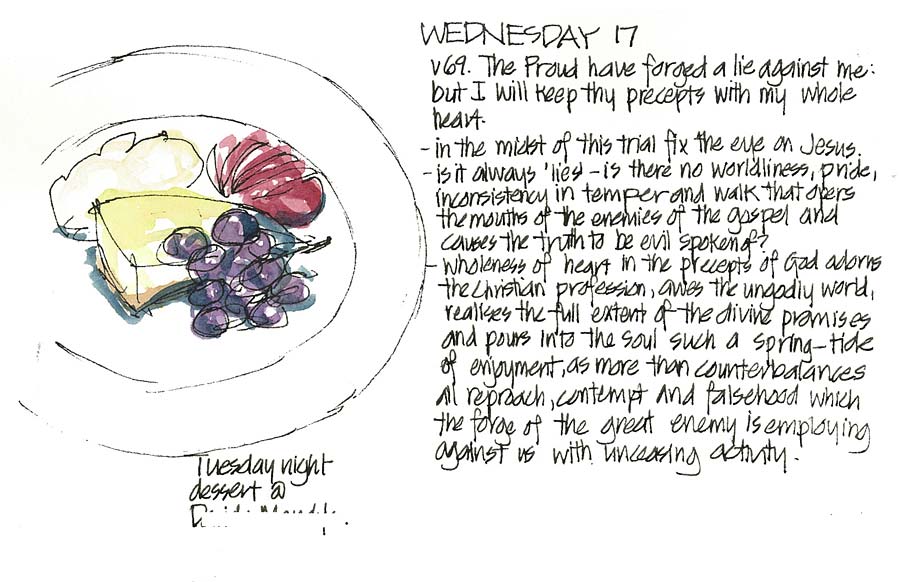 WEDNESDAY 17
v69. The Proud have forged a lie against me:
but I will keep thy precepts with my whole
heart.
- in the midst of this trial fix the eye on Jesus.
- is it always 'lies' - is there no worldliness, pride,
inconsistency in temper and walk that opens
the mouths of the enemies of the gospel and
causes the truth to be evil spoken of?
- wholeness of heart in the precepts of God adorns
the Christian profession, awes the ungodly world,
realises the full extent of the divine promises
and pours into the soul such a spring-tide
of enjoyment, as more than counterbalances
all reproach, contempt and falsehood which
the forge of the great enemy is employing
against us with unceasing activity.
Tuesday night
dessert @